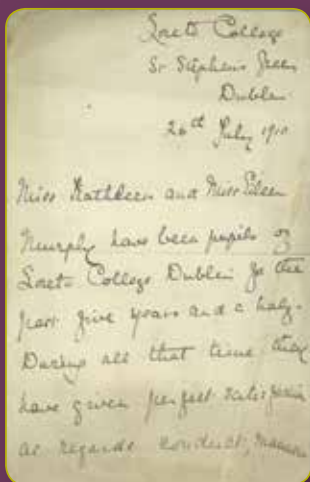 Loreto College
St Stephens Green
Dublin
26th July 1910
Miss Kathleen and Miss Eileen
Murphy have been pupils of
Loreto College Dublin for the
past five years and a half.
During all that time they
have given perfect satisfaction
as regards conduct, manner